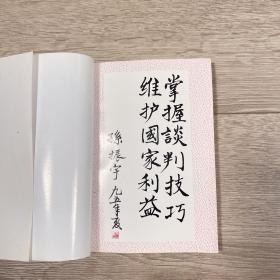 掌握談判技巧
维护國家利益
孫振宇 九五年夏